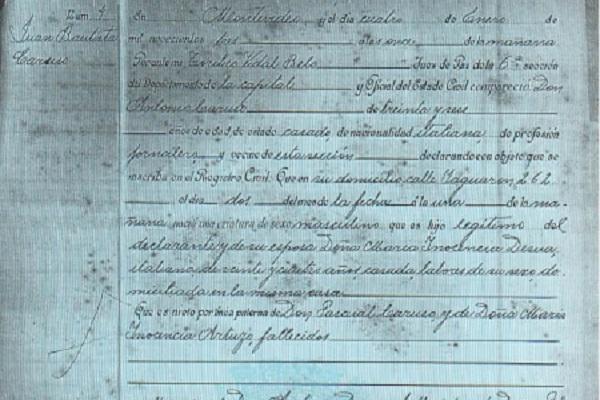 Núm. 4
Juan Bautista
Caruso
En Montevideo y el día cuatro de Enero de
mil novecientos tres á las once de la mañana
Por ante mí Vidal Belo Juez de Paz de la 6a sección
del Departamento de la capital y Oficial del Estado Civil compareció Don
Antonio Caruso de treinta y seis
años de edad, de estado casado, de nacionalidad italiana de profesión
jornalero y vecino de esta sección declarando con objeto que se
inscriba en el Registro Civil: Que en su domicilio calle Yaguarón 262
el día dos del mes de la fecha á la una de la ma-
ñana nació una criatura de sexo masculino que es hijo legítimo del
declarante y de su esposa Doña María Inocencia
italiana, de veinte y cuatro años casada, labores de su sexo, do-
miciliada en la misma casa
Que es nieto por línea paterna de Don Pascual Caruso y de Doña María
Inocencia fallecidos